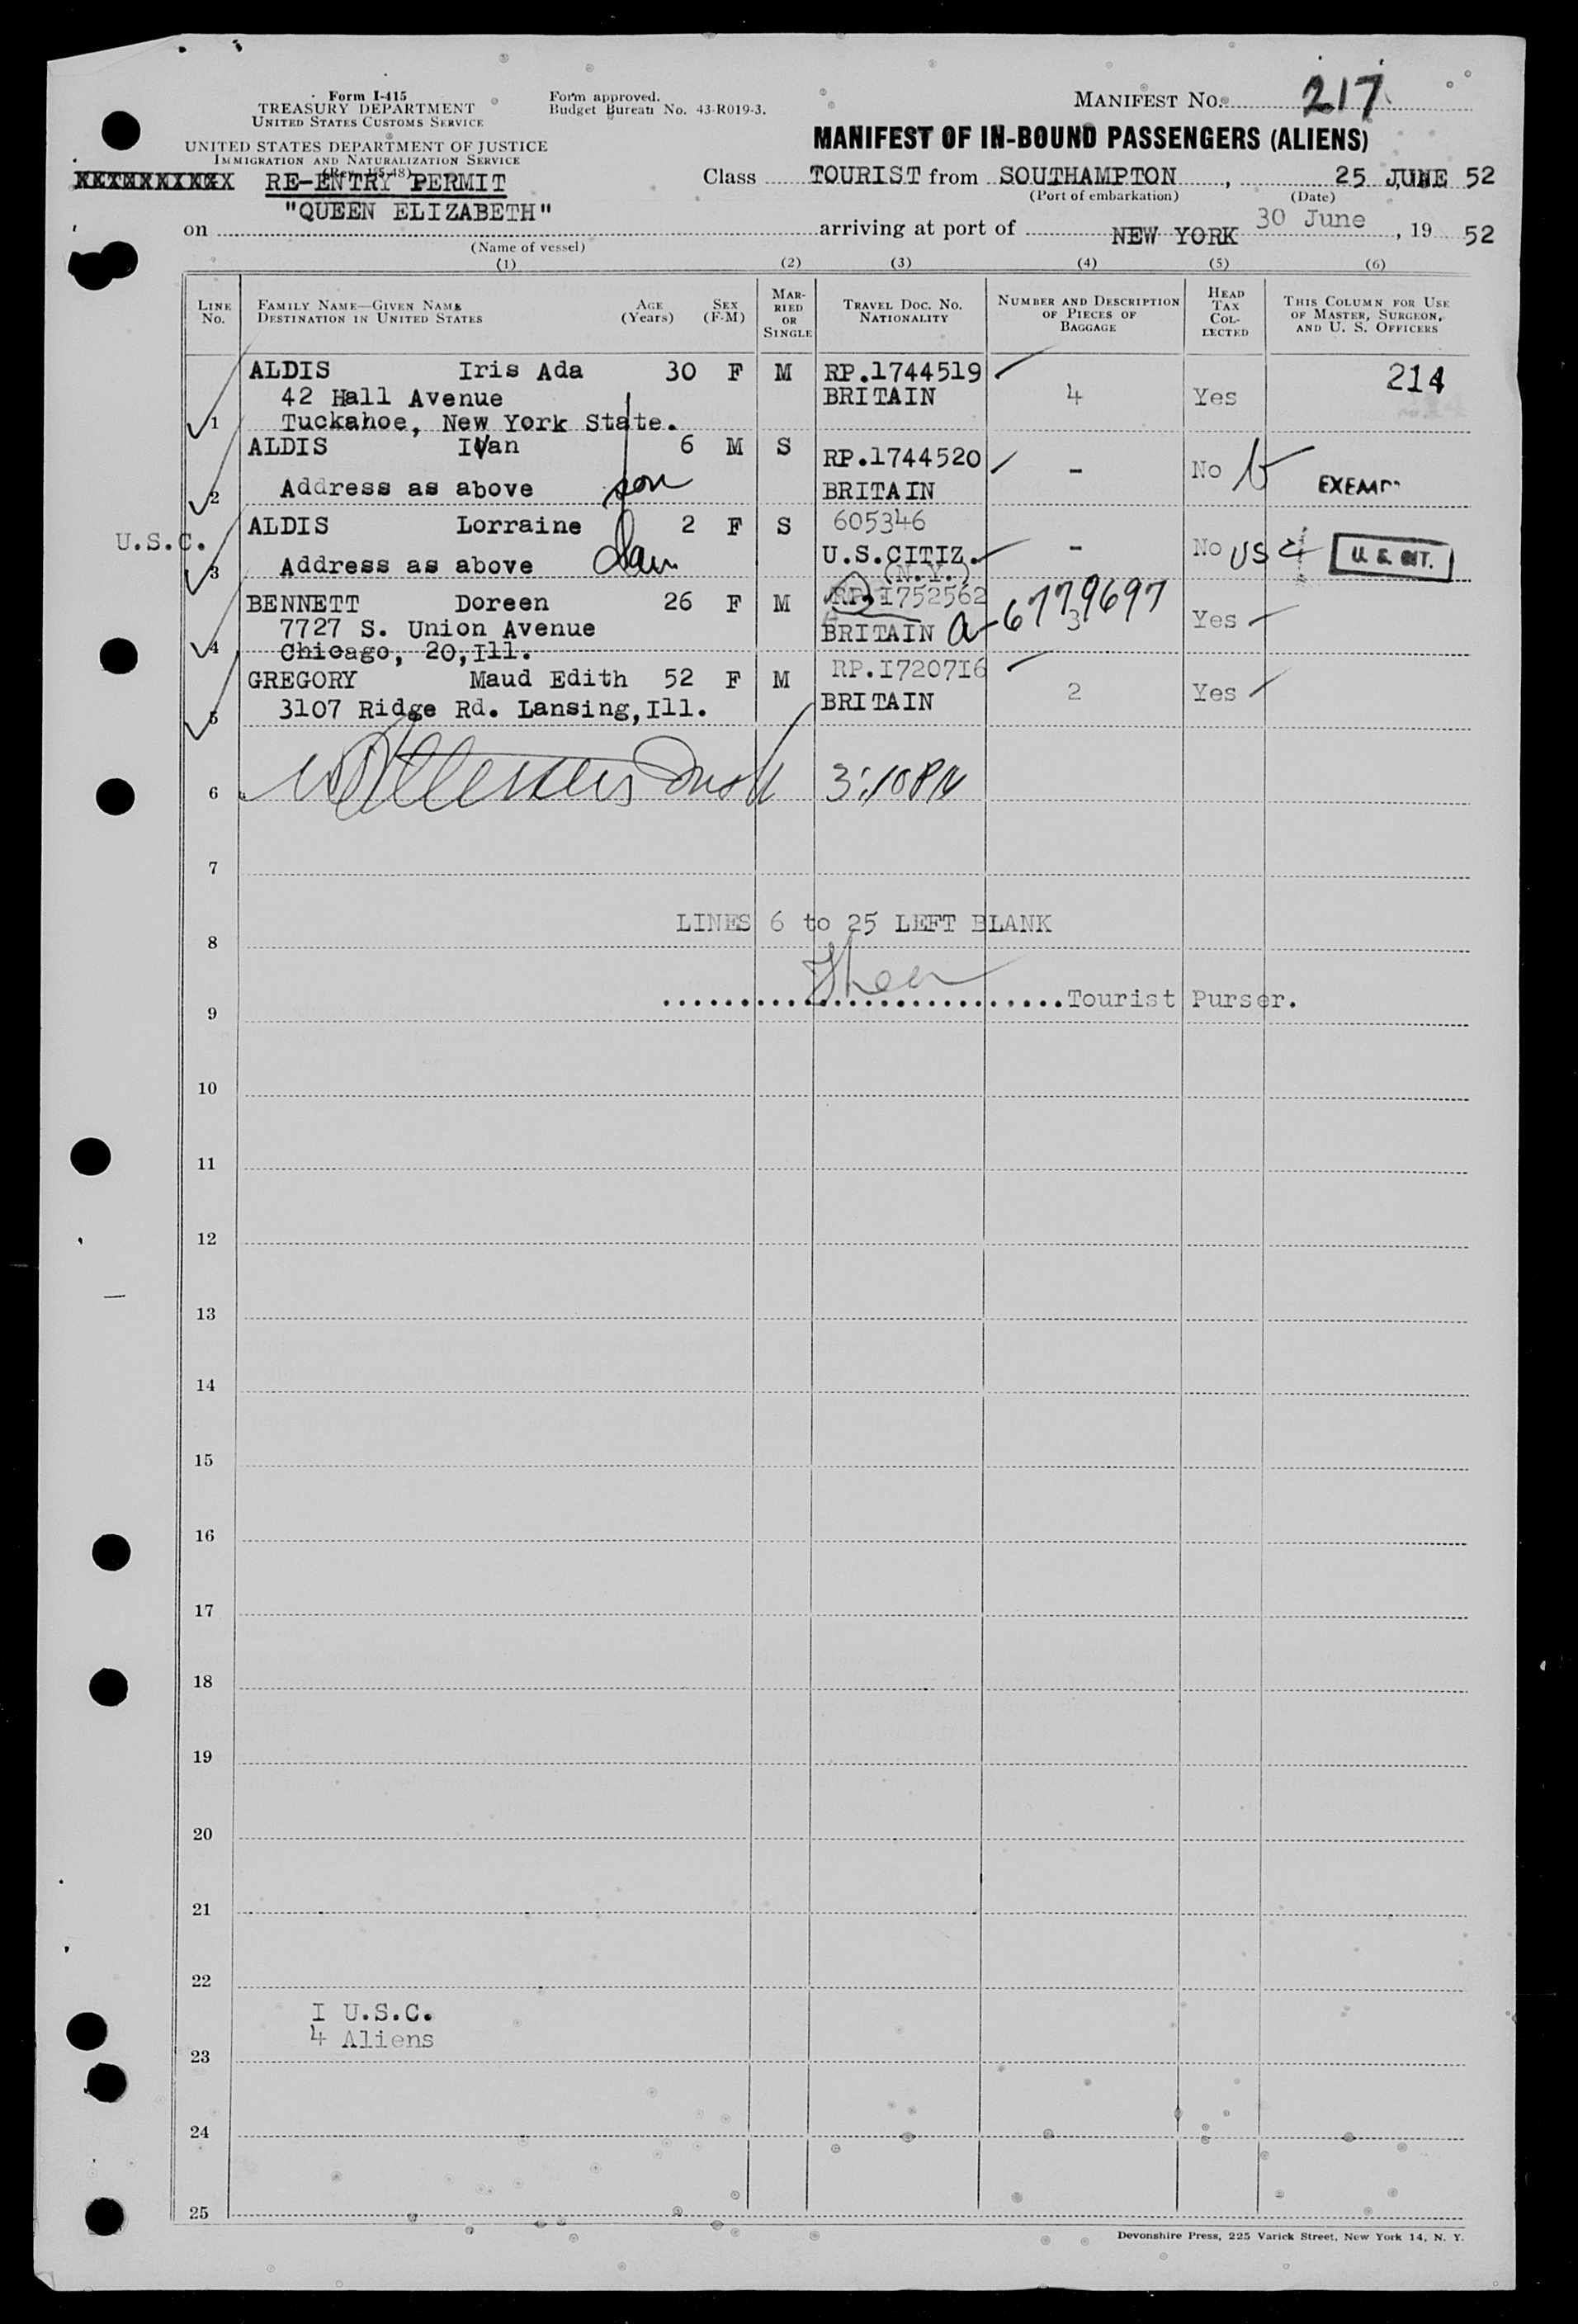 Form I-415
TREASURY DEPARTMENT
UNITED STATES CUSTOMS SERVICE
UNITED STATES DEPARTMENT OF JUSTICE
IMMIGRATION AND NATURALIZATION SERVICE
Form approved.
Budget Bureau No. 43-R019-3.
MANIFEST No. 217
MANIFEST OF IN-BOUND PASSENGERS (ALIENS)
XXXXXXXXXX RE-ENTRY PERMIT
Class TOURIST from SOUTHAMPTON, 25 JUNE 52
(Port of embarkation) (Date)
on "QUEEN ELIZABETH" arriving at port of NEW YORK 30 June, 19 52
(Name of vessel)
(1) (2) (3) (4) (5) (6)
LINE No. FAMILY NAME—GIVEN NAME DESTINATION IN UNITED STATES AGE (Years) SEX (F-M) MARRIED OR SINGLE TRAVEL DOC. NO. NATIONALITY NUMBER AND DESCRIPTION OF PIECES OF BAGGAGE HEAD TAX COLLECTED THIS COLUMN FOR USE OF MASTER, SURGEON, AND U. S. OFFICERS
ALDIS Iris Ada 30 F M RP.1744519 214
42 Hall Avenue BRITAIN 4 Yes
1 Tuckahoe, New York State.
ALDIS Ivan 6 M S RP.1744520 - No
2 Address as above son BRITAIN EXEMPT
U.S.C. ALDIS Lorraine 2 F S 605346
3 Address as above dau U.S.CITIZ. - No USC U. S. CIT.
(N.Y.)
BENNETT Doreen 26 F M RP.I752562
7727 S. Union Avenue BRITAIN a-6779697 3 Yes
4 Chicago, 20,Ill.
GREGORY Maud Edith 52 F M RP.I720716
5 3107 Ridge Rd. Lansing,Ill. BRITAIN 2 Yes
6 3:10 PM
7
LINES 6 to 25 LEFT BLANK
8
9 Tourist Purser.
10
11
12
13
14
15
16
17
18
19
20
21
22
I U.S.C.
4 Aliens
23
24
25
Devonshire Press, 225 Varick Street, New York 14, N. Y.